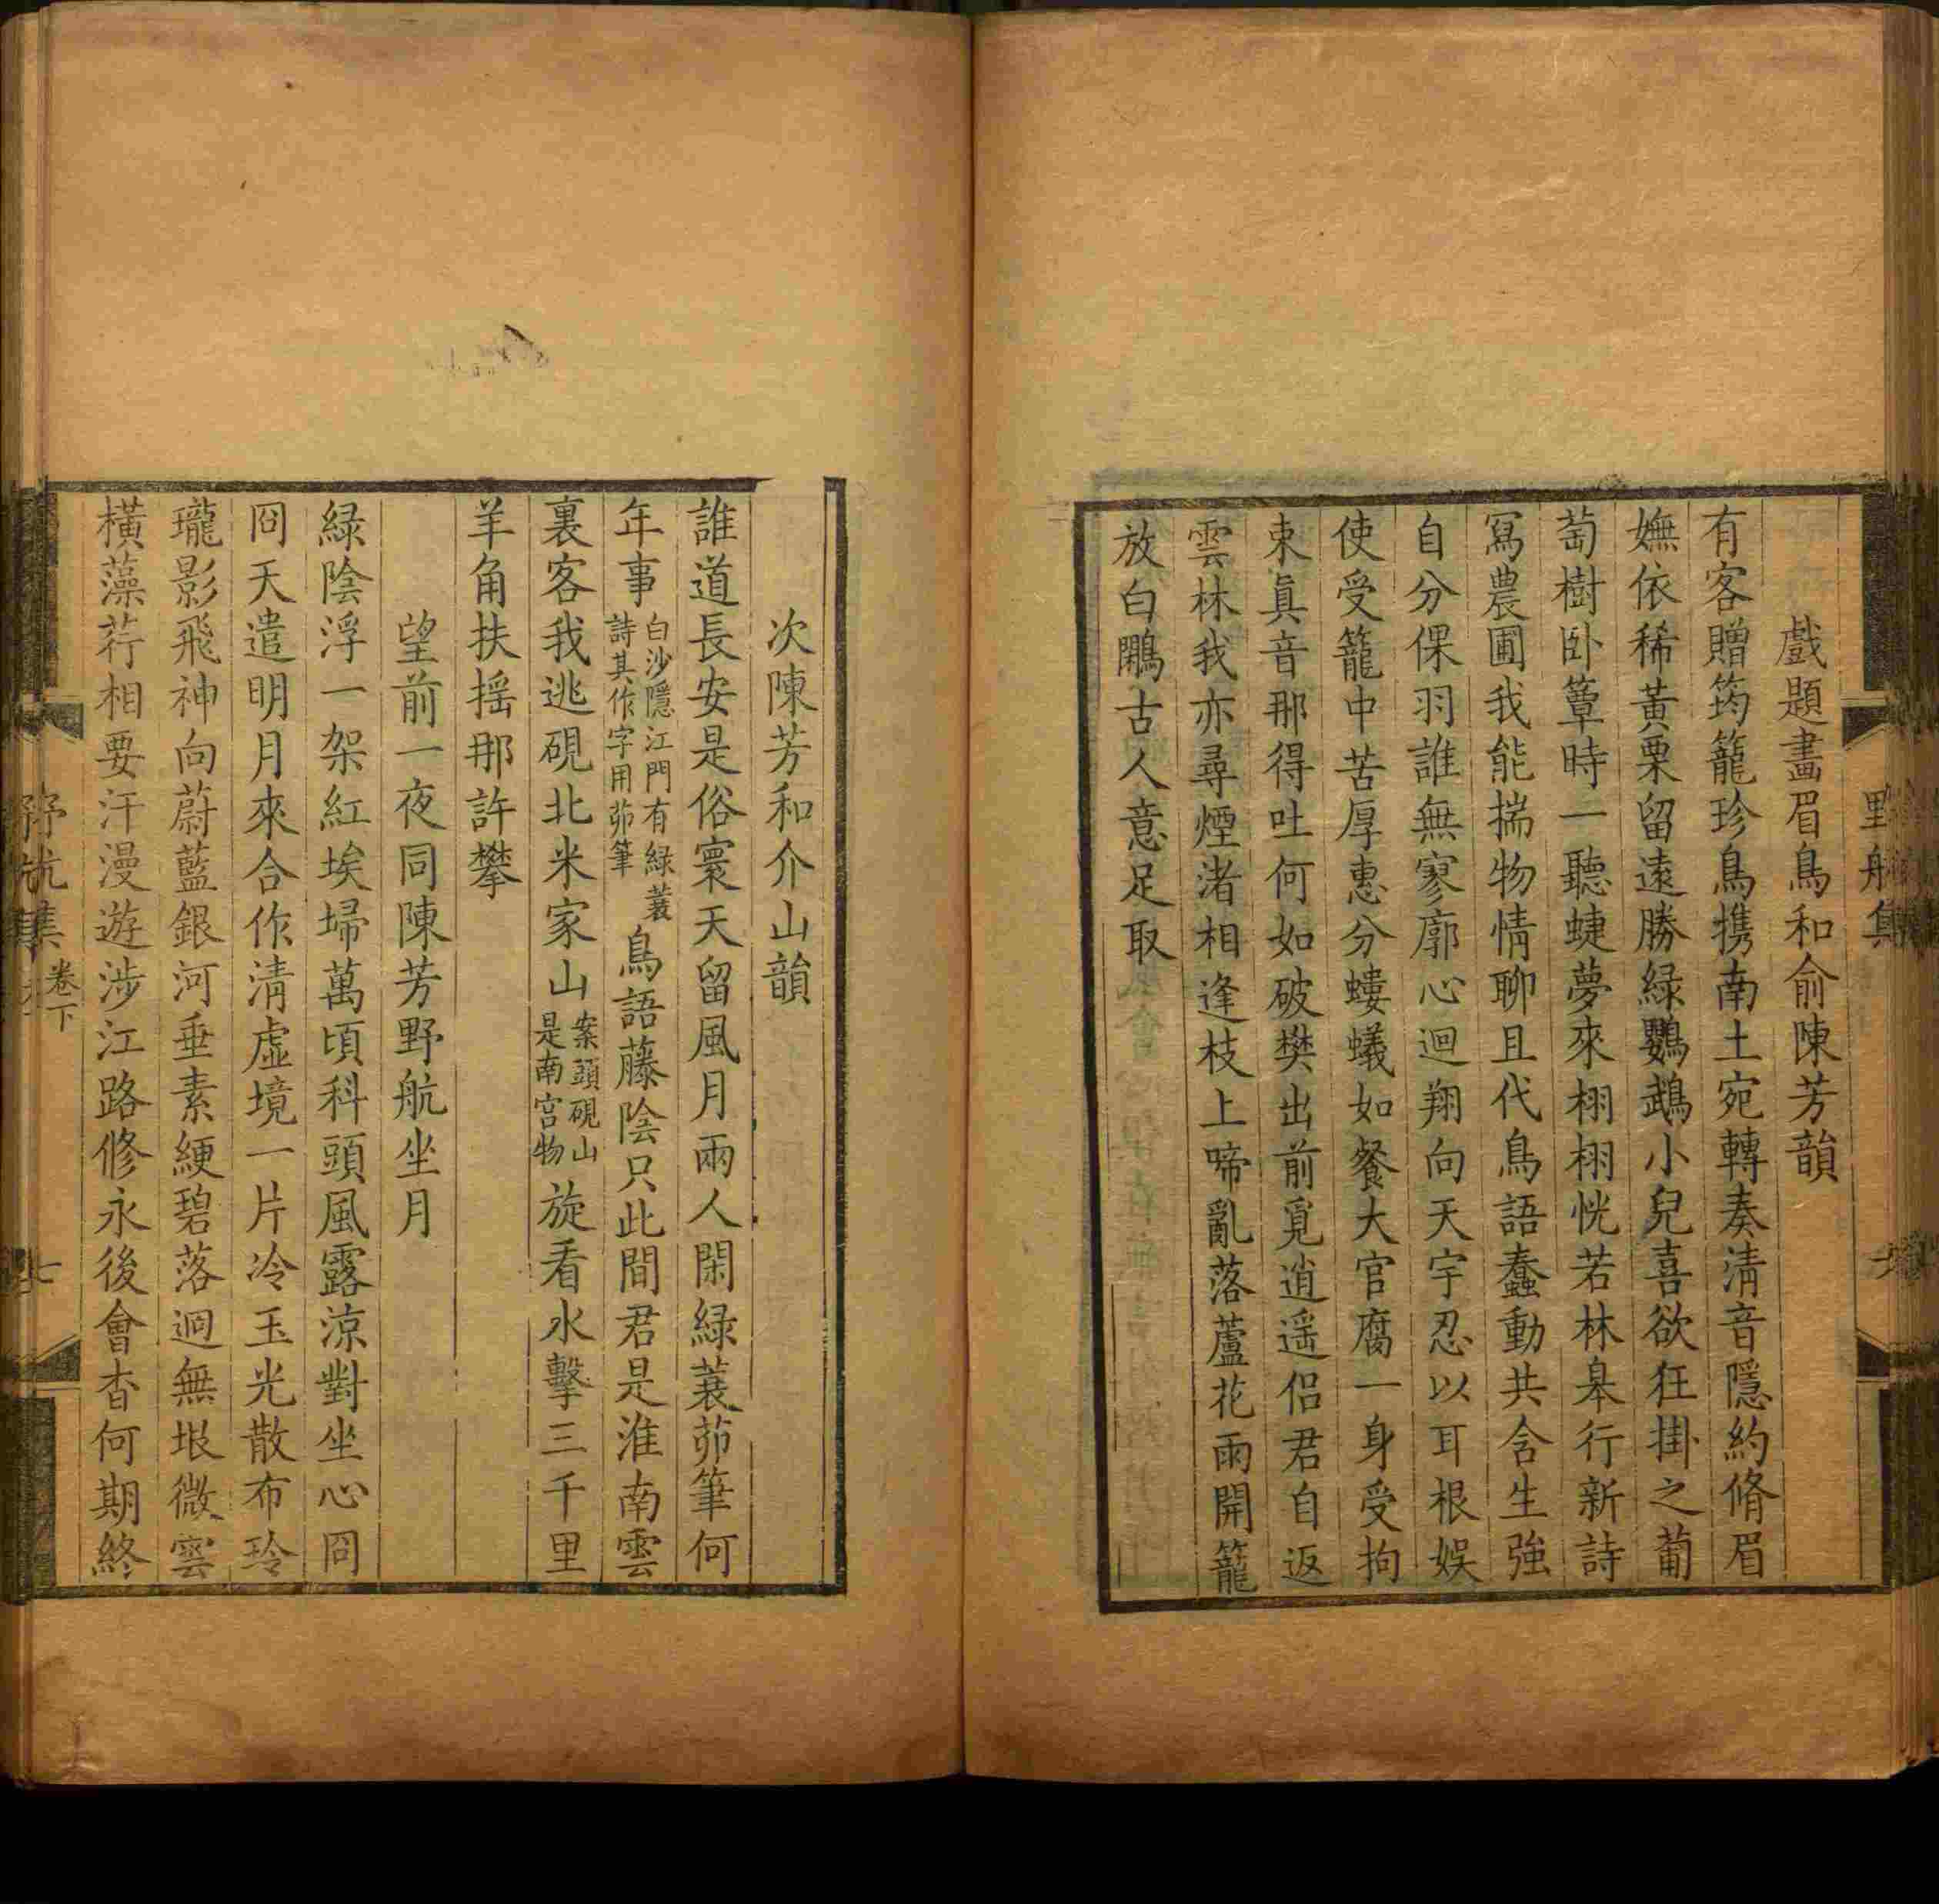 戲題畫眉鳥和俞陳芳韻
有客贈筠籠珍鳥携南土宛轉奏淸音隱約脩眉
嫵依稀黃栗留遠勝綠鸚鵡小兒喜欲狂掛之葡
萄樹卧簟時一聽蜨夢來栩栩恍若林皋行新詩
寫農圃我能揣物情聊且代鳥語蠢動共含生強
自分倮羽誰無寥廓心迴翔向天宇忍以耳根娛
使受籠中苦厚惠分螻蟻如餐大官腐一身受拘
束眞音那得吐何如破樊出前覓逍遥侣君自返
雲林我亦尋煙渚相逢枝上啼亂落蘆花雨開籠
放白鷴古人意足取
次陳芳和介山韻
誰道長安是俗寰天留風月兩人閑綠蓑茆筆何
年事白沙隱江門有綠蓑
詩其作字用茆筆
鳥語藤陰只此間君是淮南雲
裏客我逃硯北米家山案頭硯山
是南宫物
旋看水擊三千里
羊角扶揺那許攀
望前一夜同陳芳野航坐月
綠陰浮一架紅埃埽萬頃科頭風露涼對坐心冏
冏天遣明月來合作淸虛境一片冷玉光散布玲
瓏影飛神向蔚藍銀河垂素綆碧落迥無垠微雲
橫藻荇相要汗漫遊涉江路修永後會杳何期終
野航集
卷下
七